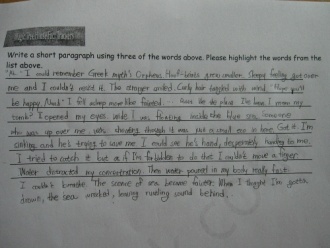 Write a short paragraph using three of the words above. Please highlight the words from the
list above.
"Ah." I could remember Greek myth's Orpheus. Half-blind, grew smaller. Sleepy feeling got over
me and I couldn't resist it. The stronger smiled. Curly hair tangled with wind. "Hope you'll
be happy, Noah." I fell asleep more like fainted.
tomb? I opened my eyes wide I was floating inside the blue sea. Someone
who was up over me, was shouting through it was just a small one in here. Got it. I'm
sinking and he's trying to save me. I could see he's hand, desperately handing to me.
I tried to catch it but as if I'm forbidden to do that I couldn't move a finger.
Water distracted my concentration. Then water poured in my body really fast.
I couldn't breathe. The scene of sea became fainter. When I thought I'm gonna
drown, the sea wrecked, leaving rustling sound behind.